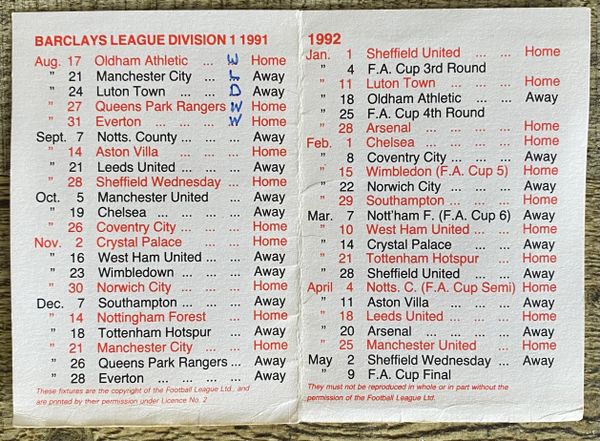 BARCLAYS LEAGUE DIVISION 1 1991
Aug. 17 Oldham Athletic ... W Home
" 21 Manchester City ... L Away
" 24 Luton Town ... ... D Away
" 27 Queens Park Rangers W Home
" 31 Everton ... ... ... W Home
Sept. 7 Notts. County ... ... ... Away
" 14 Aston Villa ... ... ... Home
" 21 Leeds United ... ... ... Away
" 28 Sheffield Wednesday ... Home
Oct. 5 Manchester United ... Away
" 19 Chelsea ... ... ... ... Away
" 26 Coventry City ... ... ... Home
Nov. 2 Crystal Palace ... ... Home
" 16 West Ham United ... ... Away
" 23 Wimbledown ... ... ... Away
" 30 Norwich City ... ... ... Home
Dec. 7 Southampton ... ... ... Away
" 14 Nottingham Forest ... Home
" 18 Tottenham Hotspur ... Away
" 21 Manchester City ... ... Home
" 26 Queens Park Rangers ... Away
" 28 Everton ... ... ... ... Away
These fixtures are the copyright of the Football League Ltd., and
are printed by their permission under Licence No. 2
1992
Jan. 1 Sheffield United ... ... Home
" 4 F.A. Cup 3rd Round
" 11 Luton Town ... ... ... Home
" 18 Oldham Athletic ... ... Away
" 25 F.A. Cup 4th Round
" 28 Arsenal ... ... ... ... Home
Feb. 1 Chelsea ... ... ... ... Home
" 8 Coventry City ... ... ... Away
" 15 Wimbledon (F.A. Cup 5) Home
" 22 Norwich City ... ... ... Away
" 29 Southampton ... ... ... Home
Mar. 7 Nott'ham F. (F.A. Cup 6) Away
" 10 West Ham United ... ... Home
" 14 Crystal Palace ... ... Away
" 21 Tottenham Hotspur ... Home
" 28 Sheffield United ... ... Away
April 4 Notts. C. (F.A. Cup Semi) Home
" 11 Aston Villa ... ... ... Away
" 18 Leeds United ... ... ... Home
" 20 Arsenal ... ... ... ... Away
" 25 Manchester United ... Home
May 2 Sheffield Wednesday ... Away
" 9 F.A. Cup Final
They must not be reproduced in whole or in part without the
permission of the Football League Ltd.